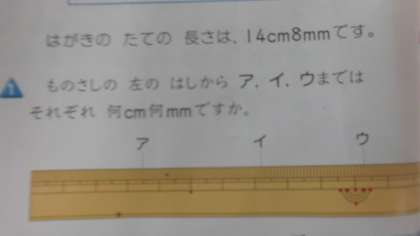 はがきの たての 長さは、14cm8mmです。
1
ものさしの 左の はしから ア、イ、ウまでは
それぞれ 何cm何mmですか。
ア イ ウ